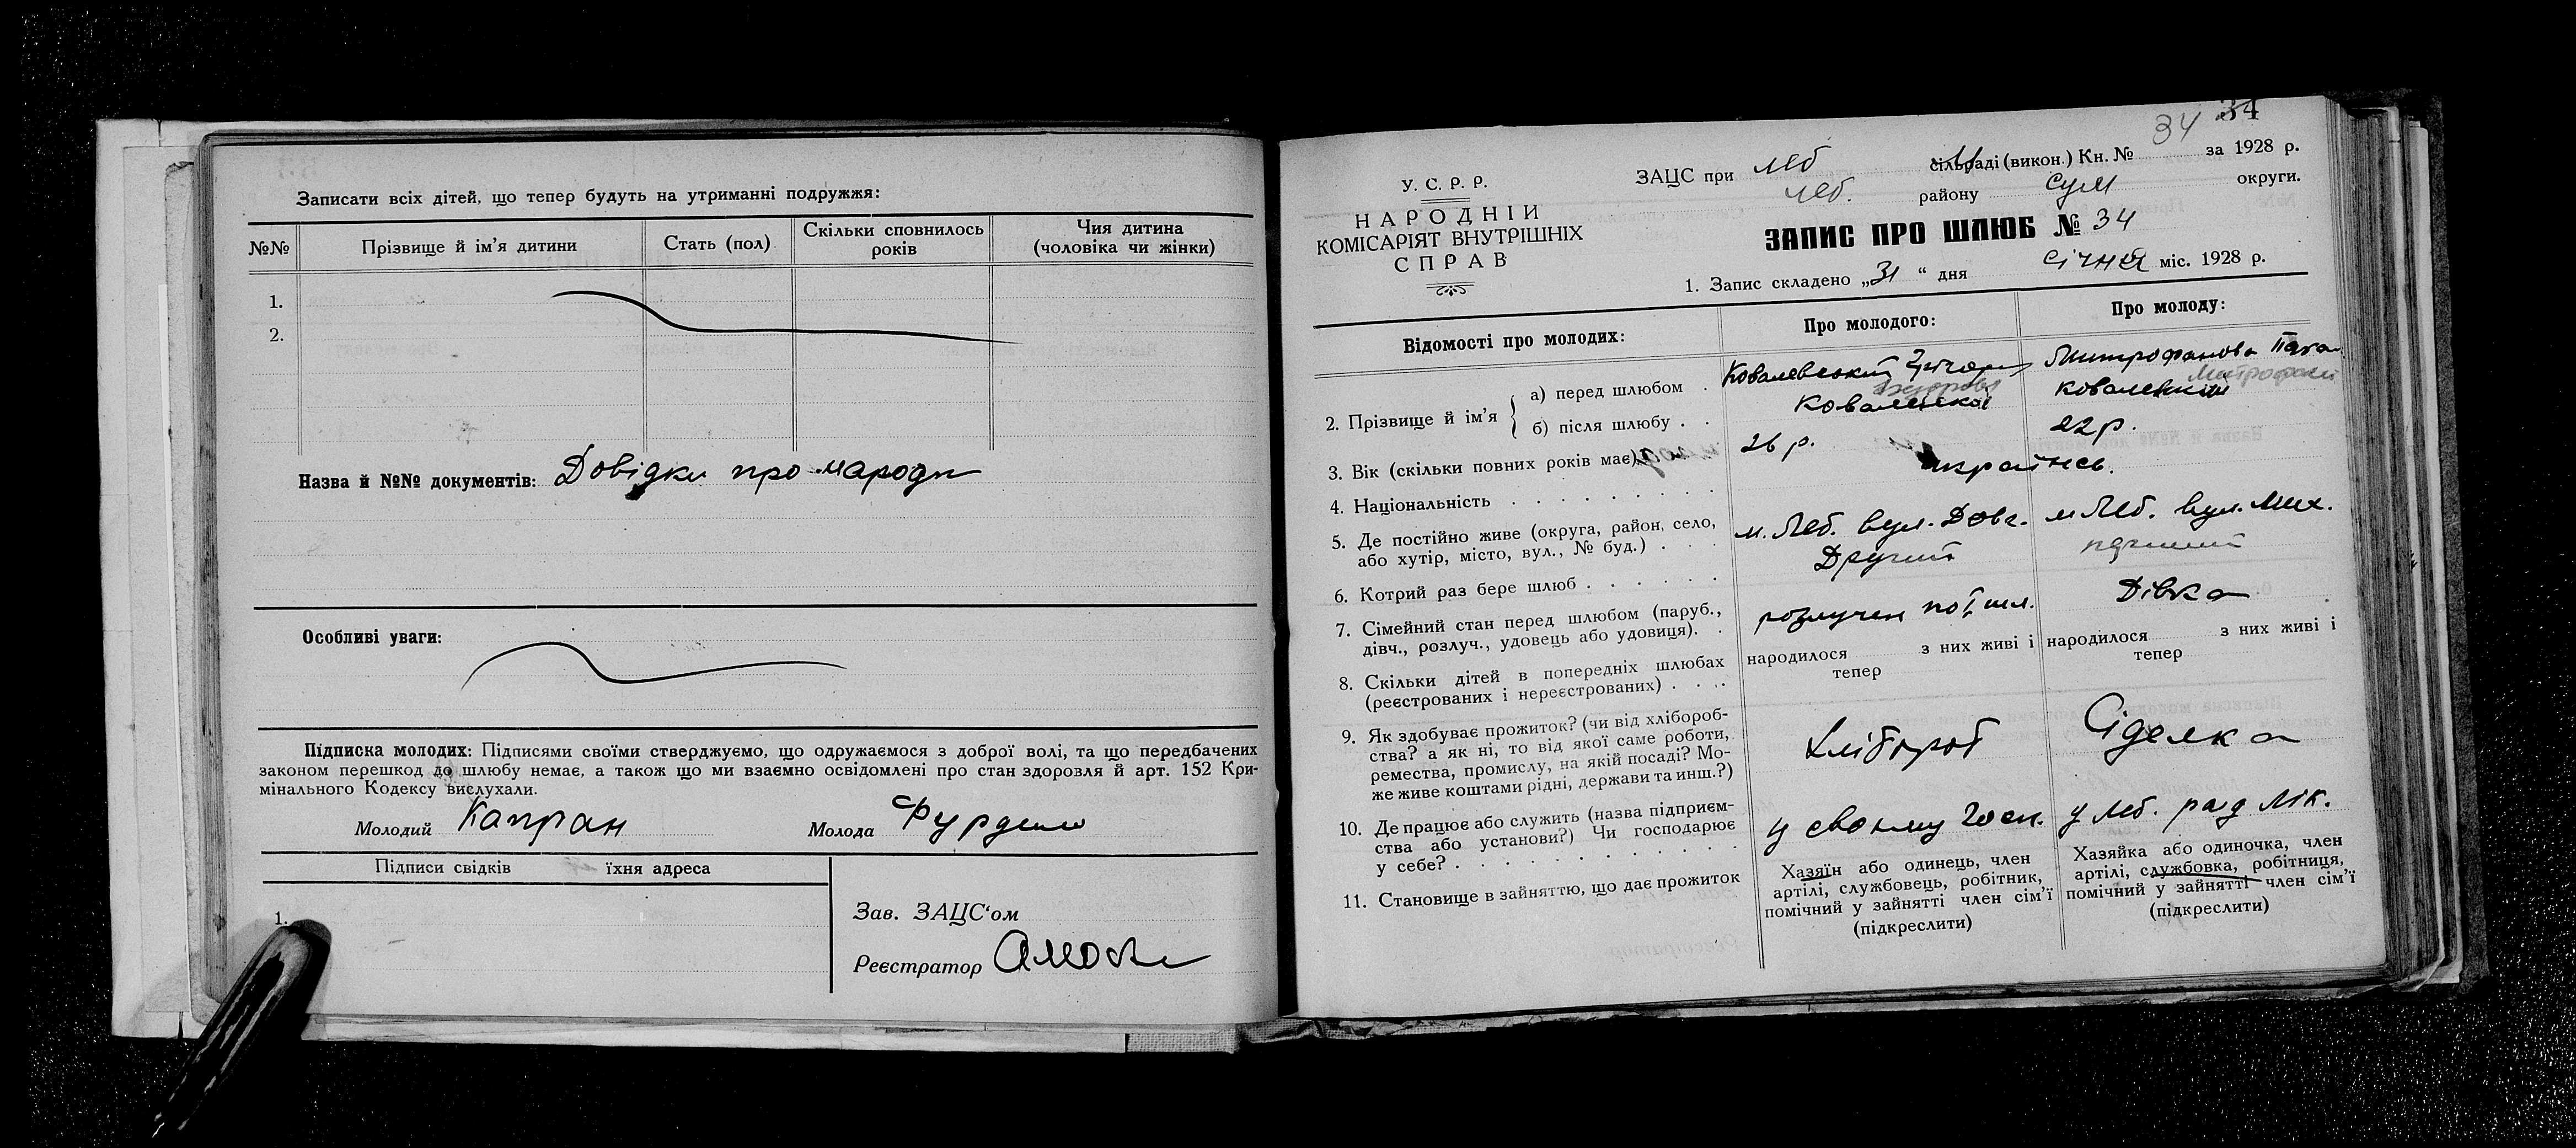 Записати всіх дітей, що тепер будуть на утриманні подружжя:
№№ Прізвище й ім'я дитини Стать (пол) Скільки сповнилось років Чия дитина (чоловіка чи жінки)
1.
2.
Назва й №№ документів: Довідки про народж
Особливі уваги:
Підписка молодих: Підписями своїми стверджуємо, що одружаємося з доброї волі, та що передбачених
законом перешкод до шлюбу немає, а також що ми взаємно освідомлені про стан здоровля й арт. 152 Кри-
мінального Кодексу вислухали.
Молодий Капран Молода Фурдило
Підписи свідків їхня адреса
1.
Зав. ЗАЦС'ом
Реєстратор
34
34
У. С. Р. Р.
НАРОДНІЙ
КОМІСАРІЯТ ВНУТРІШНІХ
СПРАВ
ЗАЦС при Леб сільраді (викон.) Кн. № за 1928 р.
Леб. району Сум округи.
ЗАПИС ПРО ШЛЮБ № 34
1. Запис складено „31“ дня січня міс. 1928 р.
Відомості про молодих: Про молодого: Про молоду:
2. Прізвище й ім'я { а) перед шлюбом . Ковалевський Григорій Митрофанова
б) після шлюбу . .
3. Вік (скільки повних років має) 26 р. 22 р.
4. Національність . . . . . . . . . україн
5. Де постійно живе (округа, район, село,
або хутір, місто, вул., № буд.) . . . м. Леб. вул. Довг. м Леб. вул. Мих.
6. Котрий раз бере шлюб . . . . . . Другий перший
7. Сімейний стан перед шлюбом (паруб.,
дівч., розлуч., удовець або удовиця). . розлучен по I шл. Дівка
8. Скільки дітей в попередніх шлюбах
(реєстрованих і нереєстрованих) . . . .
народилося з них живі і тепер
народилося з них живі і тепер
9. Як здобуває прожиток? (чи від хлібороб-
ства? а як ні, то від якої саме роботи,
ремества, промислу, на якій посаді? Мо-
же живе коштами рідні, держави та инш.?)
Хлібороб Сіделка
10. Де працює або служить (назва підприєм-
ства або установи?) Чи господарює
у себе? . . . . . . . . . . . .
у своєму Госп. у Леб. рай лік.
11. Становище в зайняттю, що дає прожиток
Хазяїн або одинець, член
артілі, службовець, робітник,
помічний у зайнятті член сім'ї
(підкреслити)
Хазяйка або одиночка, член
артілі, службовка, робітниця,
помічний у зайнятті член сім'ї
(підкреслити)